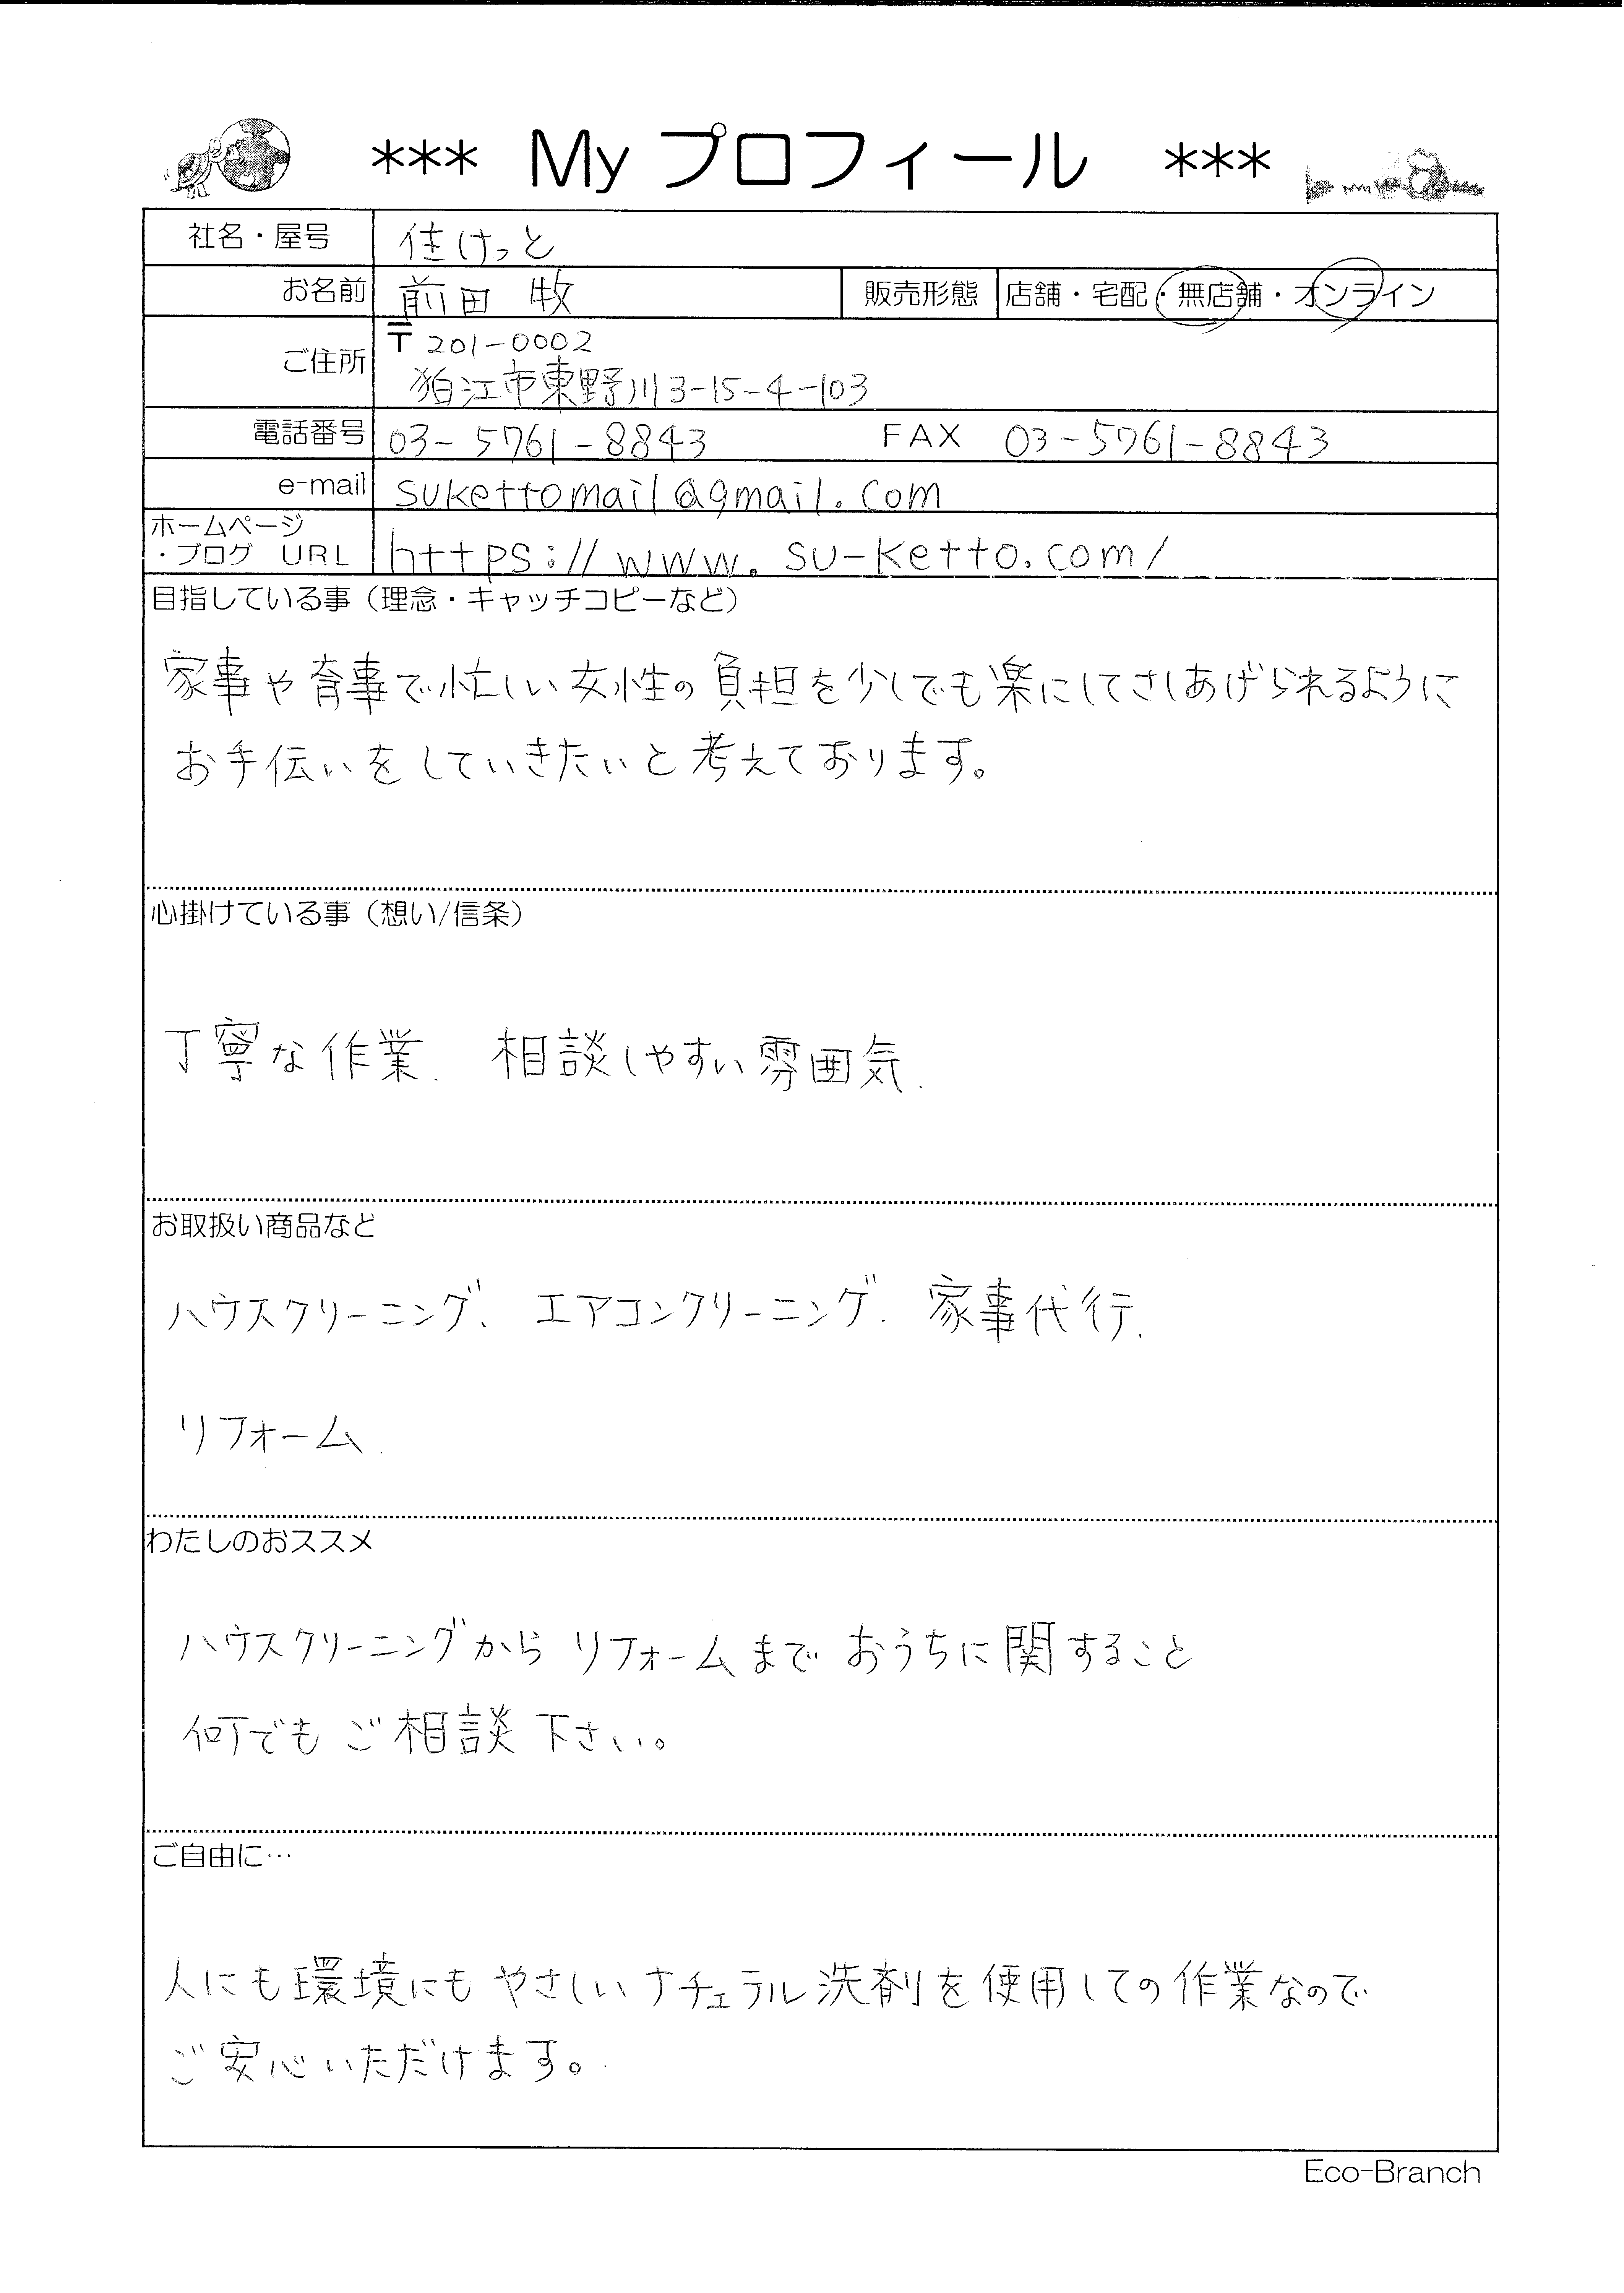 *** My プロフィール ***
社名・屋号 住けっと
お名前 前田 牧 販売形態 店舗・宅配・無店舗・オンライン
ご住所 〒201-0002
狛江市東野川3-15-4-103
電話番号 03-5761-8843 FAX 03-5761-8843
e-mail sukettomail@gmail.com
ホームページ
・ブログ URL https://www.su-ketto.com/
目指している事（理念・キャッチコピーなど）
家事や育事で忙しい女性の負担を少しでも楽にしてさしあげられるように
お手伝いをしていきたいと考えております。
心掛けている事（想い/信条）
丁寧な作業、相談しやすい雰囲気、
お取扱い商品など
ハウスクリーニング、エアコンクリーニング、家事代行、
リフォーム、
わたしのおススメ
ハウスクリーニングからリフォームまでおうちに関すること
何でもご相談下さい。
ご自由に…
人にも環境にもやさしいナチュラル洗剤を使用しての作業なので
ご安心いただけます。
Eco-Branch